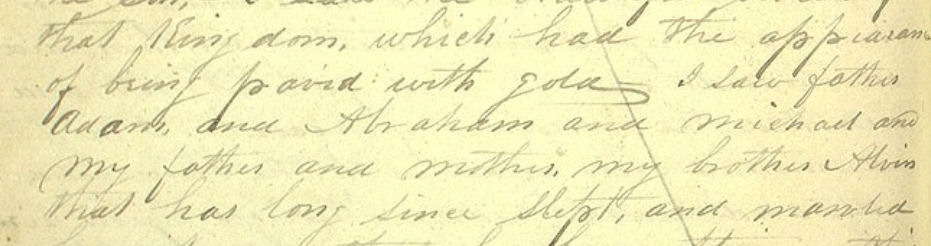 that Kingdom, which had the appearan
of being pavid with gold I saw father
Adam, and Abraham and michael and
my father and mother, my brother Alvin
that has long since slept, and marvled